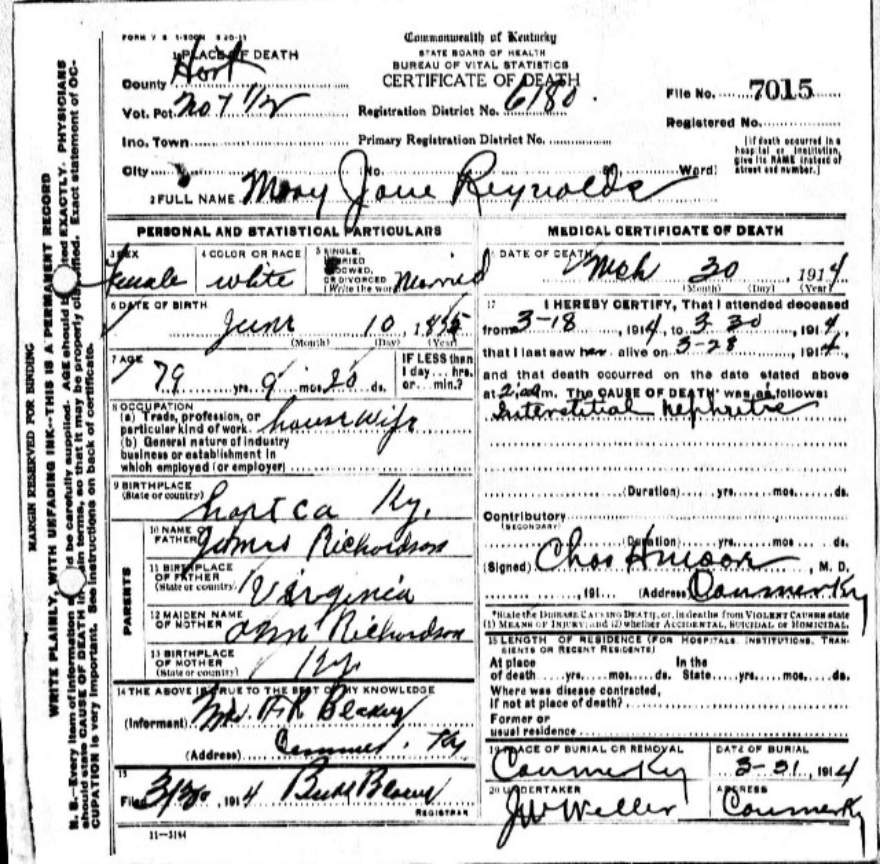 Commonwealth of Kentucky
STATE BOARD OF HEALTH
BUREAU OF VITAL STATISTICS
CERTIFICATE OF DEATH
1 PLACE OF DEATH
County Hart
Vot. Pct. No 7 1/2
Registration District No. 6180.
File No. 7015
Registered No.
Ino. Town
Primary Registration District No.
City No. Ward)
[If death occurred in a
hospital or institution,
give its NAME instead of
street and number.]
2 FULL NAME Mary Jane Reynolds
PERSONAL AND STATISTICAL PARTICULARS
3 SEX
Female
4 COLOR OR RACE
white
5 SINGLE,
MARRIED
WIDOWED,
OR DIVORCED
(Write the word) Married
6 DATE OF BIRTH
June 10, 18
(Month) (Day) (Year)
7 AGE
79 yrs. 9 mos. 20 ds.
IF LESS than
1 day... hrs.
or... min.?
8 OCCUPATION
(a) Trade, profession, or
particular kind of work. housewife
(b) General nature of industry
business or establishment in
which employed (or employer)
9 BIRTHPLACE
(State or country)
Hart co Ky.
PARENTS
10 NAME OF
FATHER James Richardson
11 BIRTHPLACE
OF FATHER
(State or country) Virginia
12 MAIDEN NAME
OF MOTHER Ann Richardson
13 BIRTHPLACE
OF MOTHER
(State or country) Ky
14 THE ABOVE IS TRUE TO THE BEST OF MY KNOWLEDGE
(Informant)
(Address) Ky
15
Filed 3/30, 1914
REGISTRAR
11-3184
MEDICAL CERTIFICATE OF DEATH
DATE OF DEATH
Mch 30, 1914
(Month) (Day) (Year)
17 I HEREBY CERTIFY, That I attended deceased
from 3-18, 1914, to 3-30, 1914,
that I last saw her alive on 3-28, 1914,
and that death occurred on the date stated above
at 2: m. The CAUSE OF DEATH* was as follows:
Interstitial nephritis
(Duration) yrs. mos. ds.
Contributory
(SECONDARY)
(Duration) yrs. mos. ds.
(Signed) Chas , M. D.
, 191... (Address) Canmer Ky
*State the DISEASE CAUSING DEATH, or, in deaths from VIOLENT CAUSES state
(1) MEANS OF INJURY; and (2) whether ACCIDENTAL, SUICIDAL or HOMICIDAL.
18 LENGTH OF RESIDENCE (FOR HOSPITALS, INSTITUTIONS, TRAN-
SIENTS OR RECENT RESIDENTS)
At place In the
of death yrs. mos. ds. State yrs. mos. ds.
Where was disease contracted,
If not at place of death?
Former or
usual residence
19 PLACE OF BURIAL OR REMOVAL
Canmer Ky
DATE OF BURIAL
3-31, 1914
20 UNDERTAKER
J W Weller
ADDRESS
Canmer Ky
MARGIN RESERVED FOR BINDING
WRITE PLAINLY, WITH UNFADING INK--THIS IS A PERMANENT RECORD
N. B.--Every item of information should be carefully supplied. AGE should be stated EXACTLY. PHYSICIANS
should state CAUSE OF DEATH in plain terms, so that it may be properly classified. Exact statement of OC-
CUPATION is very important. See instructions on back of certificate.